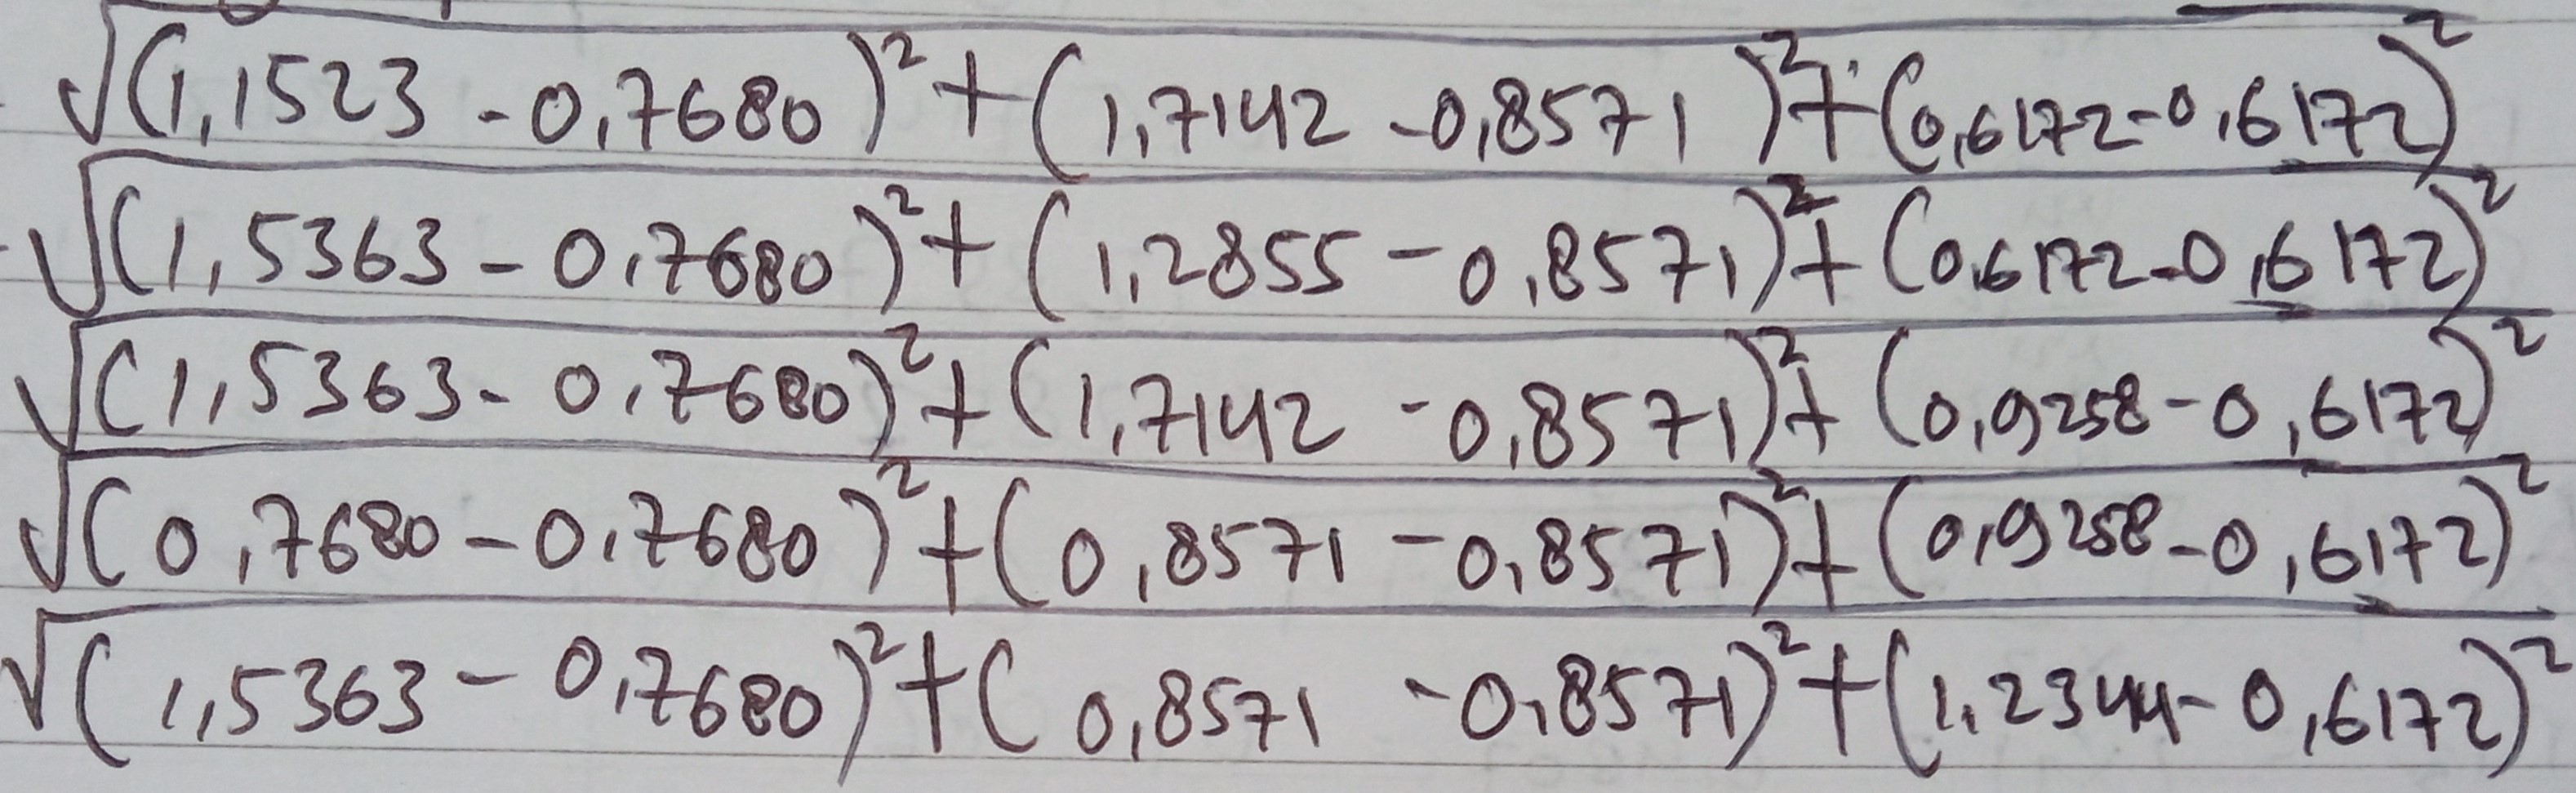 √(1,1523 - 0,7680)² + (1,7142 - 0,8571)² + (0,6172 - 0,6172)²
√(1,5363 - 0,7680)² + (1,2855 - 0,8571)² + (0,6172 - 0,6172)²
√(1,5363 - 0,7680)² + (1,7142 - 0,8571)² + (0,9258 - 0,6172)²
√(0,7680 - 0,7680)² + (0,8571 - 0,8571)² + (0,9258 - 0,6172)²
√(1,5363 - 0,7680)² + (0,8571 - 0,8571)² + (1,2344 - 0,6172)²